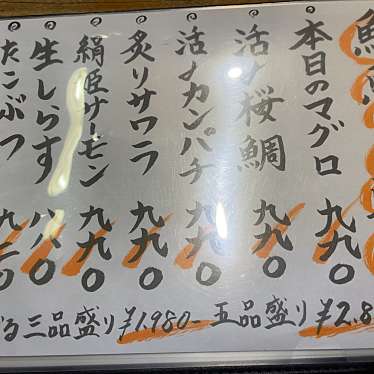 本日のマグロ 九九〇
活〆桜鯛 九九〇
活〆カンパチ 九九〇
炙りサワラ 九九〇
絹姫サーモン 九九〇
生しらす 八八〇
たこぶつ
三品盛り ¥1,980- 五品盛り ¥2.8